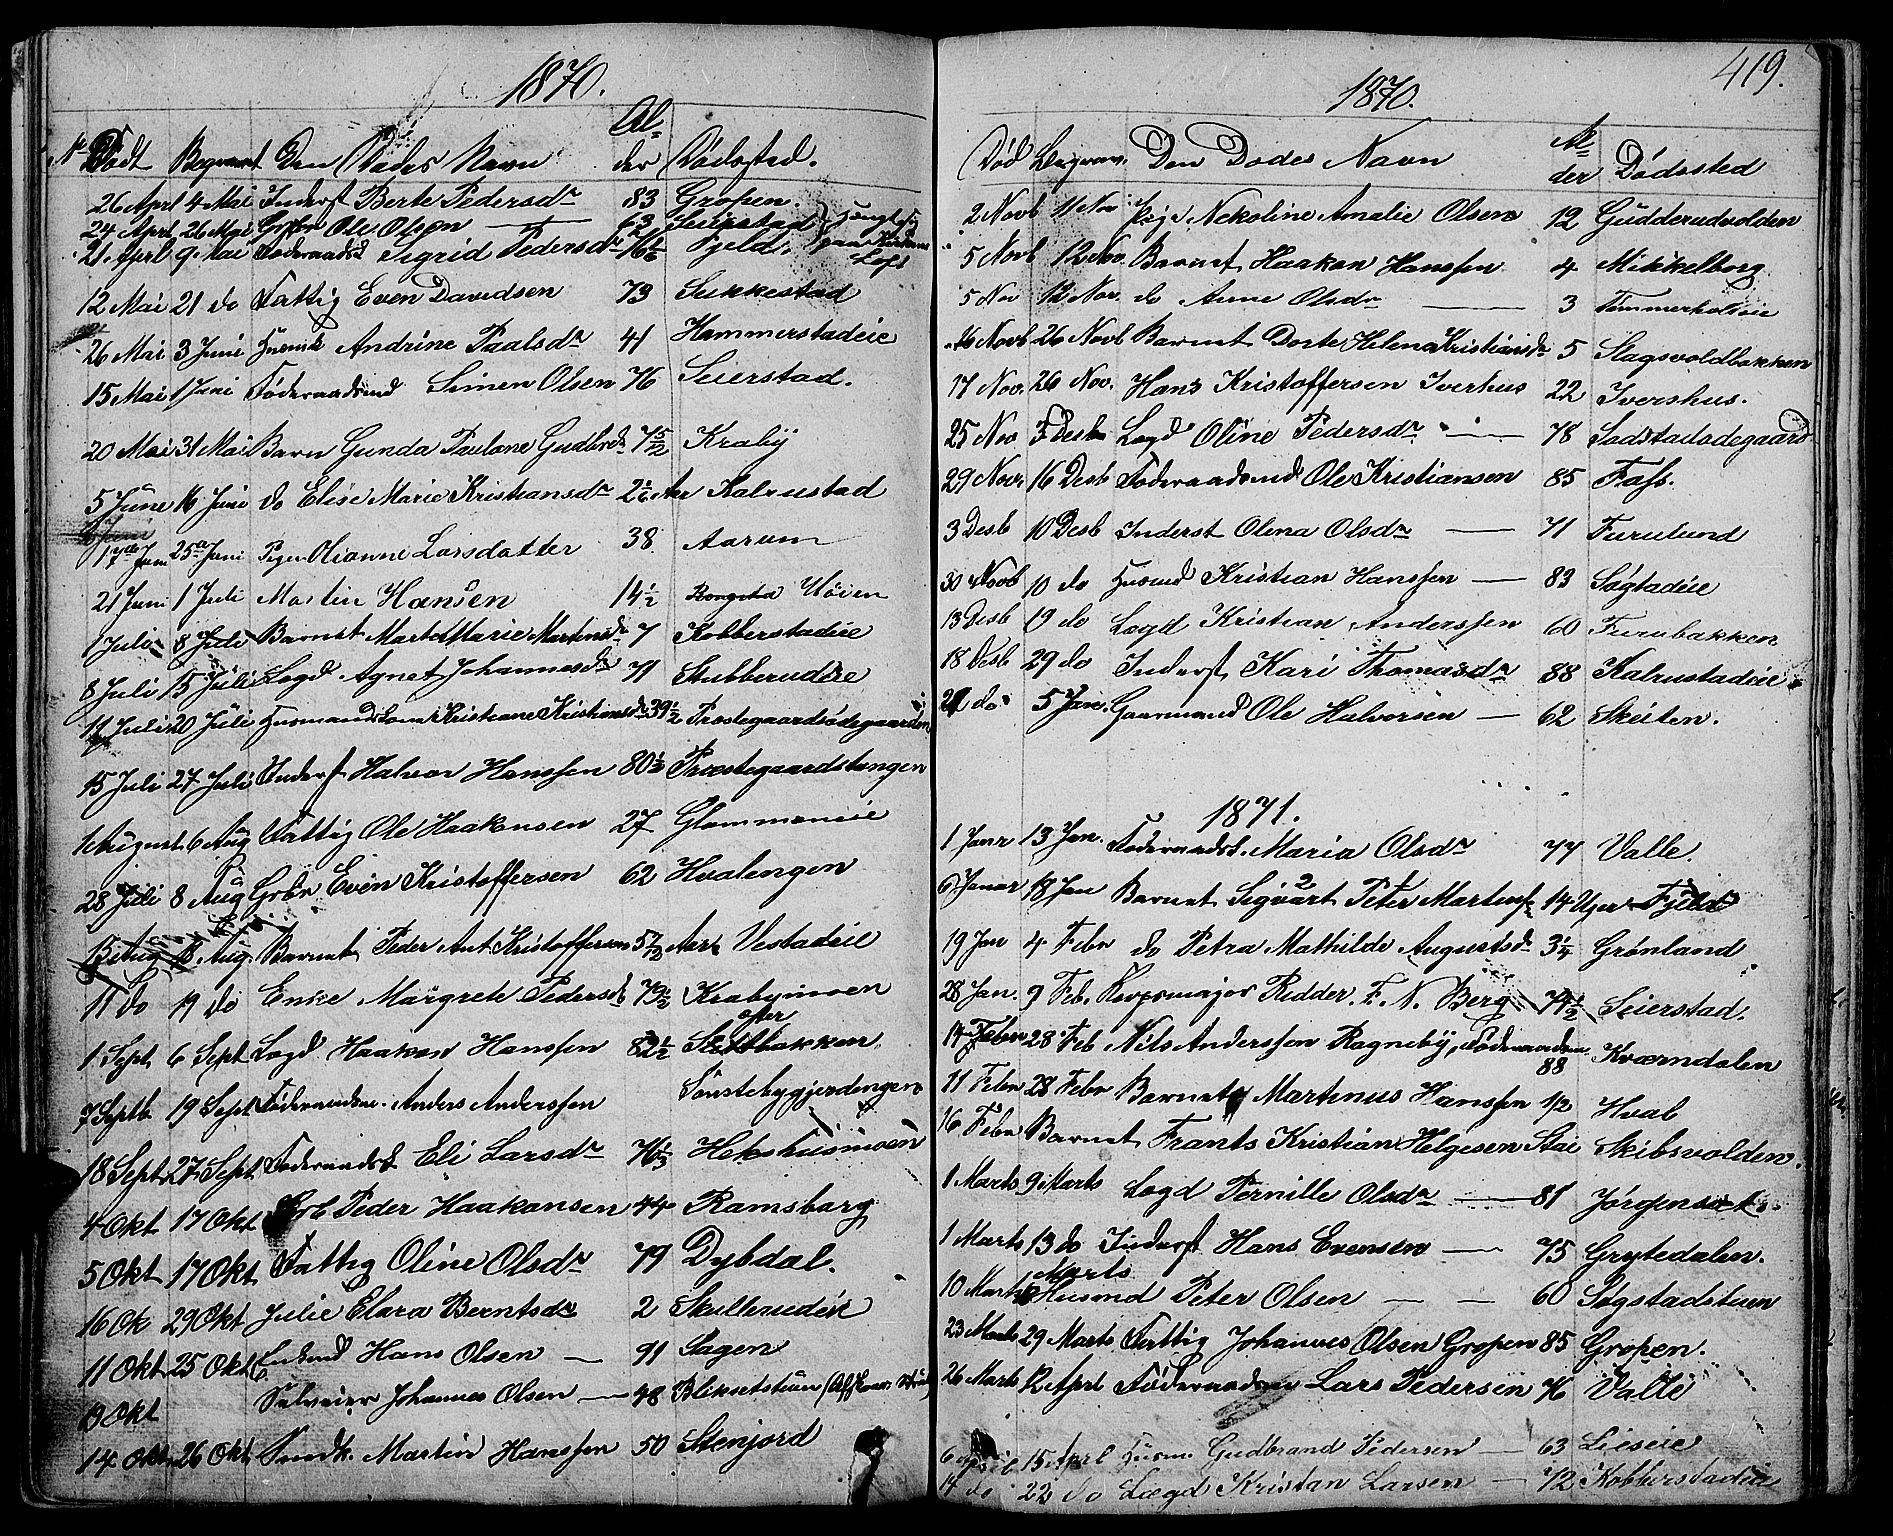 1870.
Al-
No Født Begravet Den Dødes Navn der Dødsstad.
26 April 4 Mai Inderst Berte Pedersdr 83 Gropen
24 April 26 Mai Grbr Ole Olsen 63 Seierstad
21 April 9 Mai Føderaadsk Sigrid Pedersdr 76 Fjeld.
12 Mai 21 do Fattig Even Davidsen 73 Sukkestad
26 Mai 3 Juni Husmk Andrine Paalsdr 41 Hammerstadeie
15 Mai 1 Juni Føderaadsmd Simen Olsen 76 Seierstad.
20 Mai 31 Mai Barn Gunda Paulane Gudbrdr 7 5/12 Kraby
5 June 16 Juni do Elise Marie Kristiansdr 2 1/2 Aar Kalrustad
17de Juni 25de Juni Pigen Olianne Larsdatter 38 Aarum
21 Juni 1 Juli Martin Hansen 14 1/2 Uøien
1 Juli 8 Juli Barnet Marte Marie Martinsdr 7 Kobberstadeie
8 Juli 15 Juli Lægd Agnet Johannesdr 71 Stubberudeie
11 Juli 20 Juli Husmandskone Kristiane Kristiansdr 39 1/2 Præstegaardsødegaarden
15 Juli 27 Juli Inderst Halvor Hanssen 80 1/2 Præstegaardstangen
1 August 6 Aug Fattig Ole Haakensen 27 Glommeneie
28 Juli 8 Aug Grbr Even Kristoffersen 62 Hvalengen
13 Aug 18 Aug. Barnet Peder Ant. Kristoffersen 5 1/2 Aar Vestadeie
11 do 19 do Enke Margrete Pedersd 79 1/2 Krabymoen
1 Sept 6 Sept Lægd Haakon Hanssen 82 1/2 Slettbakken
7 Septb 19 Sept Føderaadsm. Anders Anderssen Tønstebygjerdengen
18 Sept 27 Sept Føderaadsk Eli Larsdr 76 1/3 Hekshusmoen
4 Okt 17 Okt Grb Peder Haakonsen 44 Ramsbarg
5 Okt 17 Okt Fattig Oline Olsdr 79 Dybdal.
16 Ok 29 Okt Julie Elara Berntsdr 2 Skullerudeie
11 Okt 25 Okt Enkmd Hans Olsen 91 Sagen
9 Okt Selveier Johannes Olsen 48 Bliksetstuen
14 Okt 26 Okt Smedk. Martin Hanssen 50 Stenjord
419.
1870.
Al-
Død Begrav. Den Dødes Navn der Dødssted
2 Novb 11 Nov Pige Nekoline Amalie Olsen 12 Gudderudvolden
5 Novb 12 Nov. Barnet Haakon Hanssen 4 Mikkelborg
5 Nov 12 Nov. do Anne Olsdr 3 Tømmerholteie
16 Novb 26 Novb Barnet Dorte Helena Kristiansdr 5 Slagsvoldbakken
17 Nov. 26 Nov. Hans Kristoffersen Iverhus 22 Ivershus.
25 Nov 7 Desb Lægd Oline Pedersdr 78 Sadstadødegaard
29 Novr 16 Desb Føderaadsmd Ole Kristiansen 85 Fass.
3 Desb 10 Desb Inderst Olena Olsdr 71 Furulund
30 Novb 10 do Husmd Kristian Hanssen 83 Søgstadeie
13 Desb 19 do Lægd Kristian Anderssen 60 Furubakken
18 Desb 29 do Inderst Kari Thomasdr 88 Kalrustadeie
24 do 5 Jan. Gaarmand Ole Halvorsen 62 Skeiten.
1871.
1 Janr 13 Jan. Føderaadsk. Maria Olsdr 77 Valle.
6 Januar 18 Jan Barnet Sigvart Peter Martins 14 Uger Fjeld
19 Jan 4 Febr do Petra Mathilde Augustsdr 3 1/4 Grønland
28 Jan. 9 Feb. Korpsmajor Ridder F. N. Berg 74 1/2 Seierstad.
14 Febr 28 Feb Nils Anderssen Ragneby, Føderaadsm. 88 Kværndalen
11 Febr 28 Febr Barnet Martinus Hanssen 1/2 Hval
16 Febr Barnet Frants Kristian Helgesen Skibsvolden.
1 Marts 9 Marts Lægd Pernille Olsdr 81 Jørgensæt
1 Marts 13 do Inderst Hans Evensen 75 Grytedalen.
10 Marts Marts Husmd Peter Olsen 60 Søgstadstuen
23 Marts 29 Marts Fattig Johannes Olsen Gropen 85 Gropen.
26 Marts 12 April Føderaadsm Lars Pedersen 76 Valle
6 April 15 April Husm Gudbrand Pedersen 63 Lieseie
14 do 22 do Lægd Kristan Larsen 72 Kobberstadeie